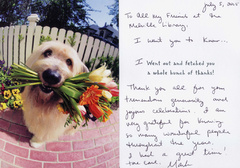 July 5, 2015
To All my Friends at the
Melville Library.
I want you to know...
I Went out and fetched you
a whole bunch of thanks!
Thank you all for your
tremendous generosity and
joyous celebrations. I am
very grateful for knowing
so many wonderful people
throughout the years.
I had a great time!